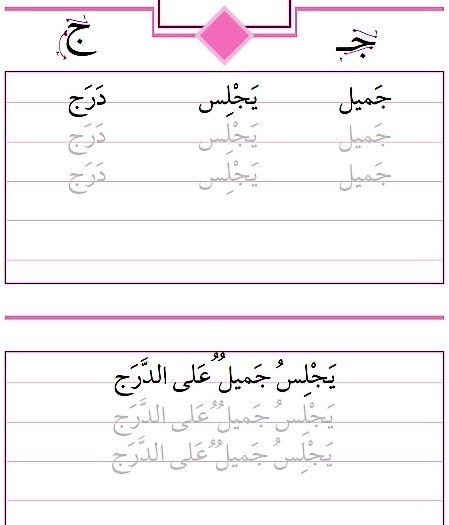 جـ ج
جَميل يَجْلِس دَرَج
جَميل يَجْلِس دَرَج
جَميل يَجْلِس دَرَج
يَجْلِسُ جَميلٌ عَلى الدَّرَج
يَجْلِسُ جَميلٌ عَلى الدَّرَج
يَجْلِسُ جَميلٌ عَلى الدَّرَج